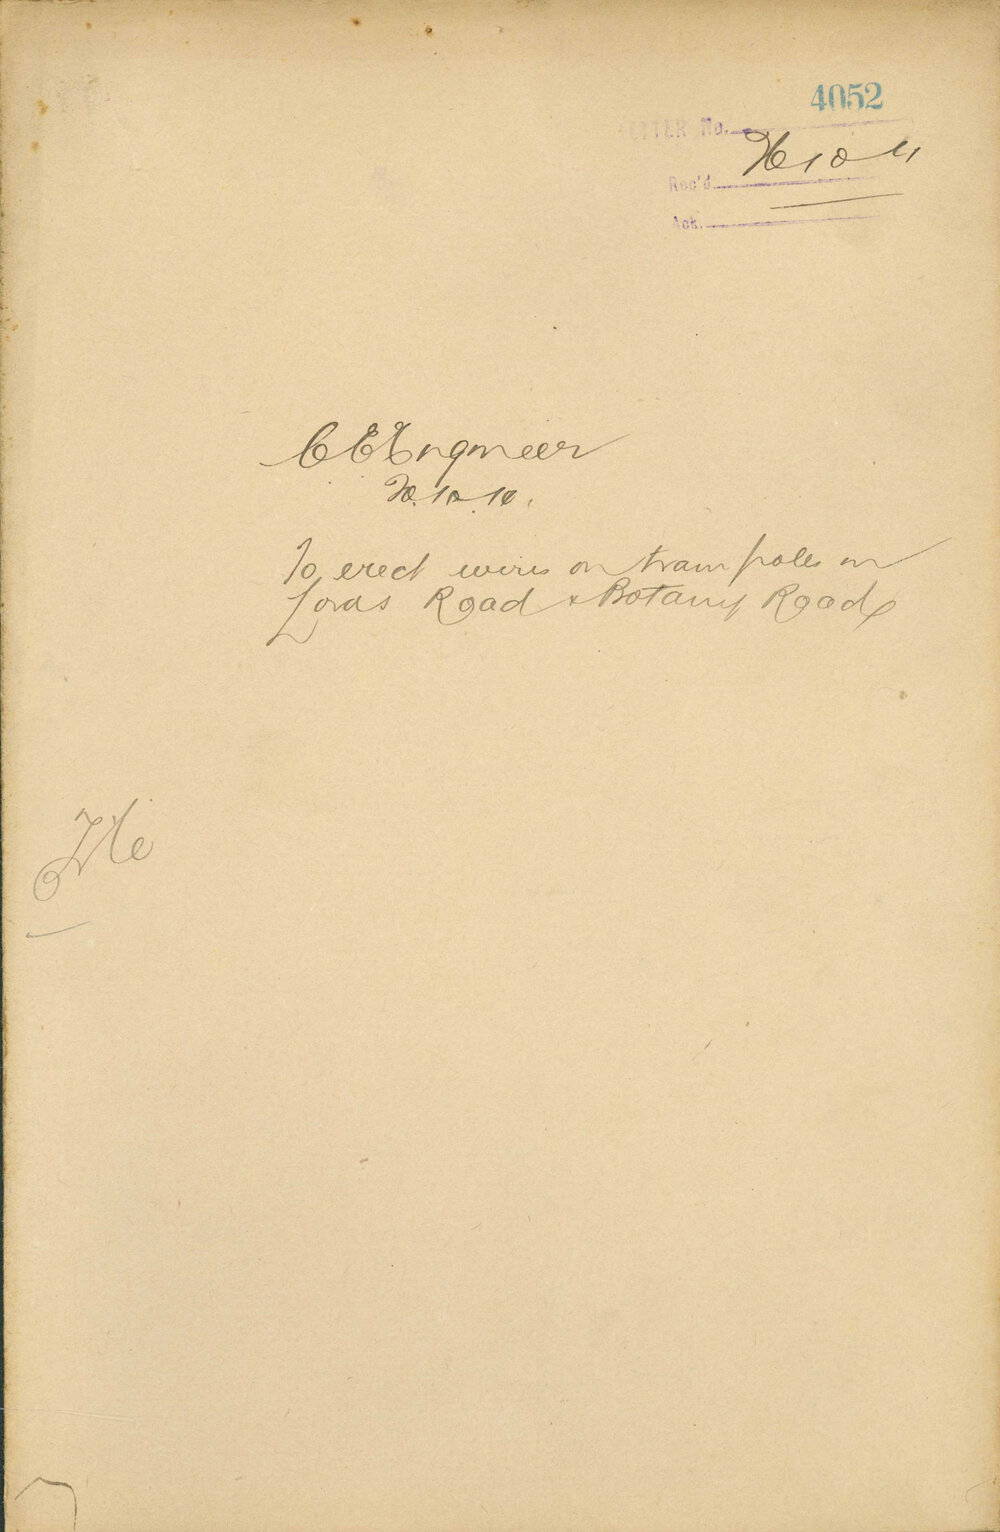 4052
LETTER No.
Rec'd
Ack.
C E Engineer
To erect wires on tram poles in
Lords Road & Botany Road
File